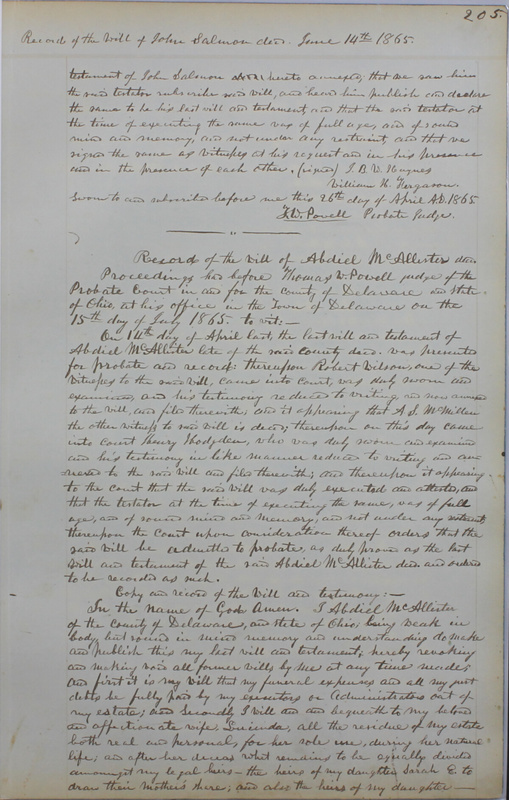 205.
Record of the Will of John Salmon decd. June 14th 1865.
testament of John Salmon hereto annexed; that we saw him
the said testator subscribe said will, and heard him publish and declare
the same to be his last will and testament, and that the said testator at
the time of executing the same was of full age, and of sound
mind and memory, and not under any restraint, and that we
signed the same as witnesses at his request and in his presence
and in the presence of each other. (signed) J. B. W. Hughes
William H. Ferguson.
Sworn to and subscribed before me this 26th day of April A.D. 1865
T. W. Powell Probate Judge.
Record of the Will of Abdiel McAllister decd.
Proceedings had before Thomas W. Powell judge of the
Probate Court in and for the county of Delaware and state
of Ohio, at his office in the Town of Delaware on the
15th day of July 1865. to wit:—
On 14th day of April last, the last will and testament of
Abdiel McAllister late of the said county decd. was presented
for probate and record: thereupon Robert Wilson, one of the
witnesses to the said will, came into court, was duly sworn and
examined, and his testimony reduced to writing and now annexed
to the will, and filed therewith; and it appearing that A. S. McMillen
the other witness to said will is dead; thereupon on this day came
into court Henry Hodgden, who was duly sworn and examined
and his testimony in like manner reduced to writing and an-
nexed to the said will and filed therewith; and thereupon it appearing
to the court that the said will was duly executed and attested, and
that the testator at the time of executing the same, was of full
age, and of sound mind and memory, and not under any restraint;
thereupon the Court upon consideration thereof orders that the
said will be admitted to probate, as duly proven as the last
will and testament of the said Abdiel McAllister decd. and ordered
to be recorded as such.
Copy and record of the Will and testimony:—
In the name of God Amen. I Abdiel McAllister
of the County of Delaware, and state of Ohio, being weak in
body, but sound in mind memory and understanding do make
and publish this my last will and testament, hereby revoking
and making void all former wills by me at any time made;
and first it is my will that my funeral expenses and all my just
debts be fully paid by my executors or Administrators out of
my estate; and Secondly I will and bequeath to my beloved
and affectionate wife, Lucinda, all the residue of my estate
both real and personal, for her sole use, during her natural
life; and after her decease what remains to be equally divided
amongst my legal heirs— the heirs of my daughter Sarah E. to
draw their Mother's share; and also the heirs of my daughter—